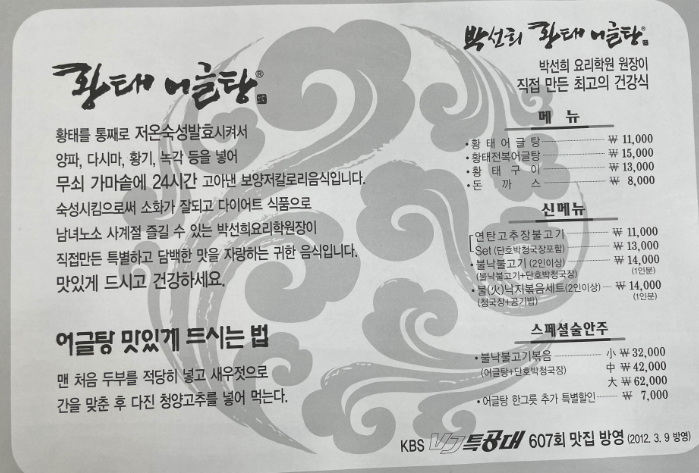 황태 어글탕®
황태를 통째로 저온숙성발효시켜서
양파, 다시마, 황기, 녹각 등을 넣어
무쇠 가마솥에 24시간 고아낸 보양저칼로리음식입니다.
숙성시킴으로써 소화가 잘되고 다이어트 식품으로
남녀노소 사계절 즐길 수 있는 박선희요리학원장이
직접만든 특별하고 담백한 맛을 자랑하는 귀한 음식입니다.
맛있게 드시고 건강하세요.
어글탕 맛있게 드시는 법
맨 처음 두부를 적당히 넣고 새우젓으로
간을 맞춘 후 다진 청양고추를 넣어 먹는다.
박선희 황태 어글탕®
박선희 요리학원 원장이
직접 만든 최고의 건강식
메 뉴
• 황 태 어 글 탕 ₩ 11,000
• 황태전복어글탕 ₩ 15,000
• 황 태 구 이 ₩ 13,000
• 돈 까 스 ₩ 8,000
신메뉴
연탄고추장불고기 ₩ 11,000
Set (단호박청국장포함) ₩ 13,000
• 불낙불고기 (2인이상) ₩ 14,000
(불낙불고기+단호박청국장) (1인분)
• 불(火)낙지볶음세트(2인이상) ₩ 14,000
(청국장+공기밥) (1인분)
스페셜술안주
• 불낙불고기볶음 小 ₩ 32,000
(어글탕+단호박청국장) 中 ₩ 42,000
大 ₩ 62,000
• 어글탕 한그릇 추가 특별할인 ₩ 7,000
KBS VJ특공대 607회 맛집 방영 (2012. 3. 9 방영)